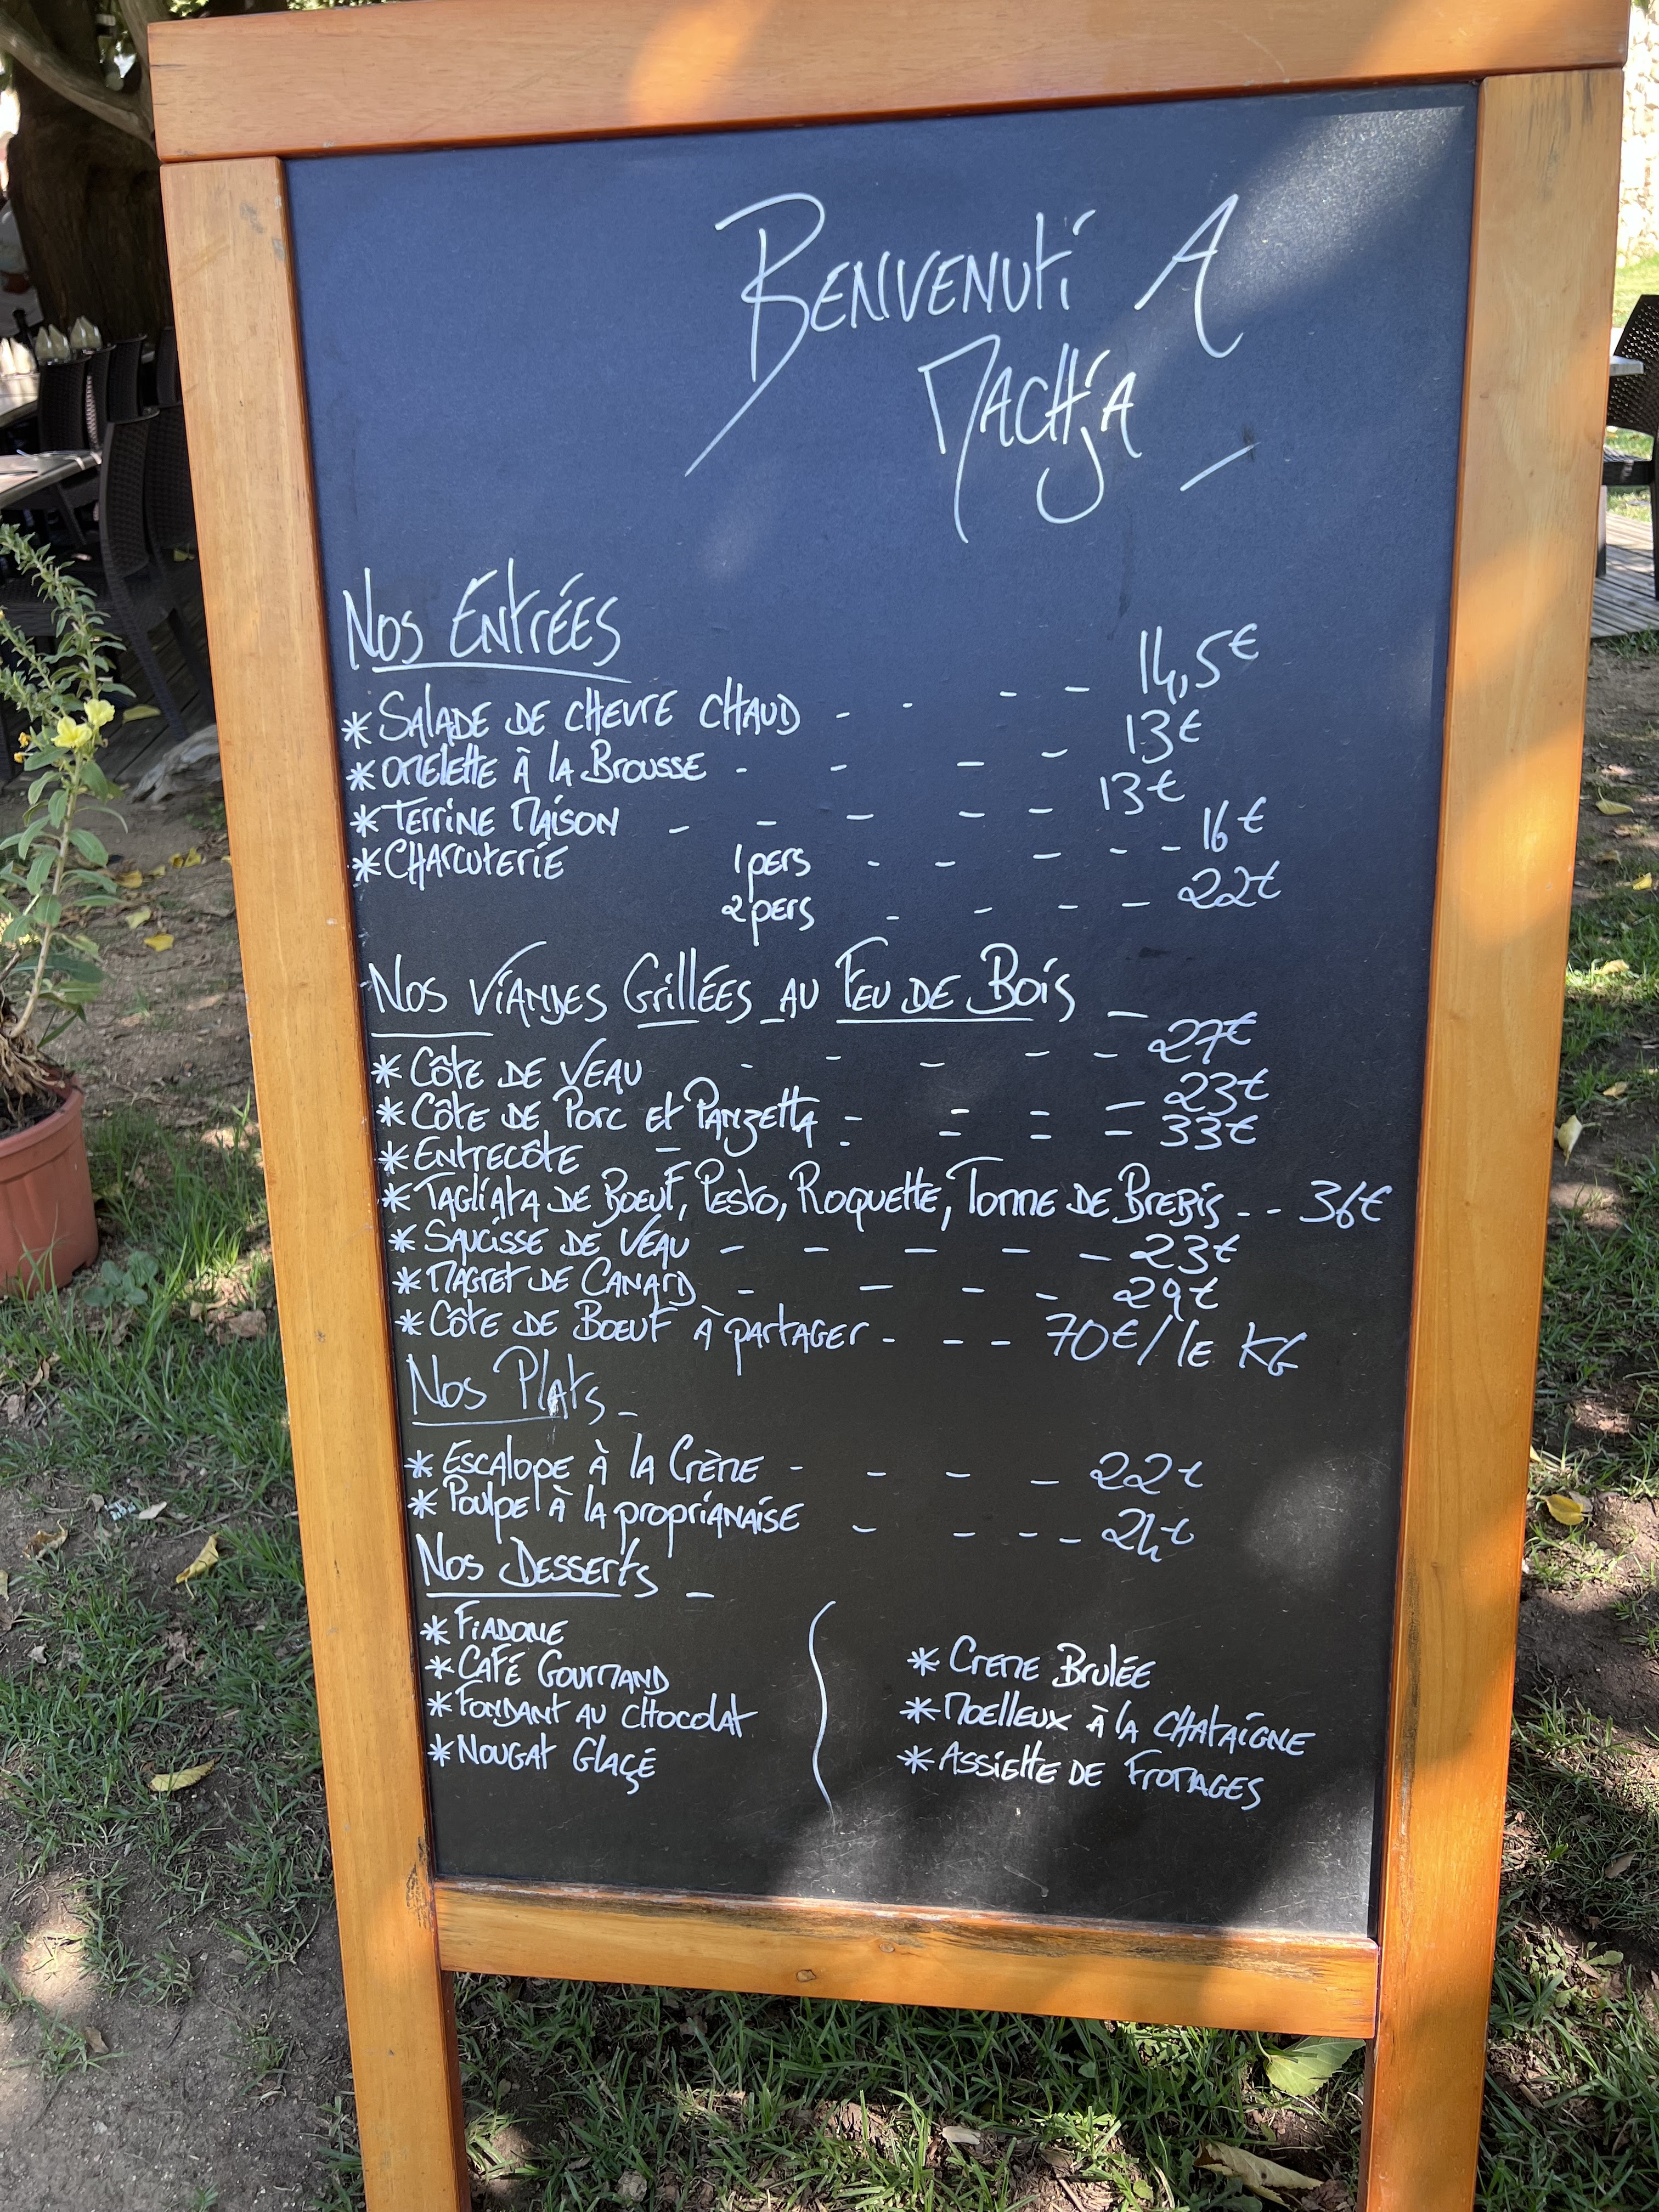 BENVENUTI A
MACHJA
NOS ENTRÉES
* SALADE DE CHEVRE CHAUD - - - - 14,5€
* OMELETTE À LA BROUSSE - - - - 13€
* TERRINE MAISON - - - - - 13€
* CHARCUTERIE 1 pers - - - - - 16€
2 pers - - - - 22€
NOS VIANDES GRILLÉES AU FEU DE BOIS -
* CÔTE DE VEAU - - - - - 27€
* CÔTE DE PORC ET PANZETTA - - - - 23€
* ENTRECÔTE - - - - - 33€
* TAGLIATA DE BOEUF, PESTO, ROQUETTE, TOMME DE BREBIS - - 36€
* SAUCISSE DE VEAU - - - - - 23€
* MAGRET DE CANARD - - - - 29€
* CÔTE DE BOEUF À PARTAGER - - - 70€/LE KG
NOS PLATS -
* ESCALOPE À LA CRÈME - - - - 22€
* POULPE À LA PROPRIANAISE - - - - 24€
NOS DESSERTS -
* FIADONE
* CAFÉ GOURMAND
* FONDANT AU CHOCOLAT
* NOUGAT GLAÇÉ
* CREME BRULÉE
* MOELLEUX À LA CHATAIGNE
* ASSIETTE DE FROMAGES